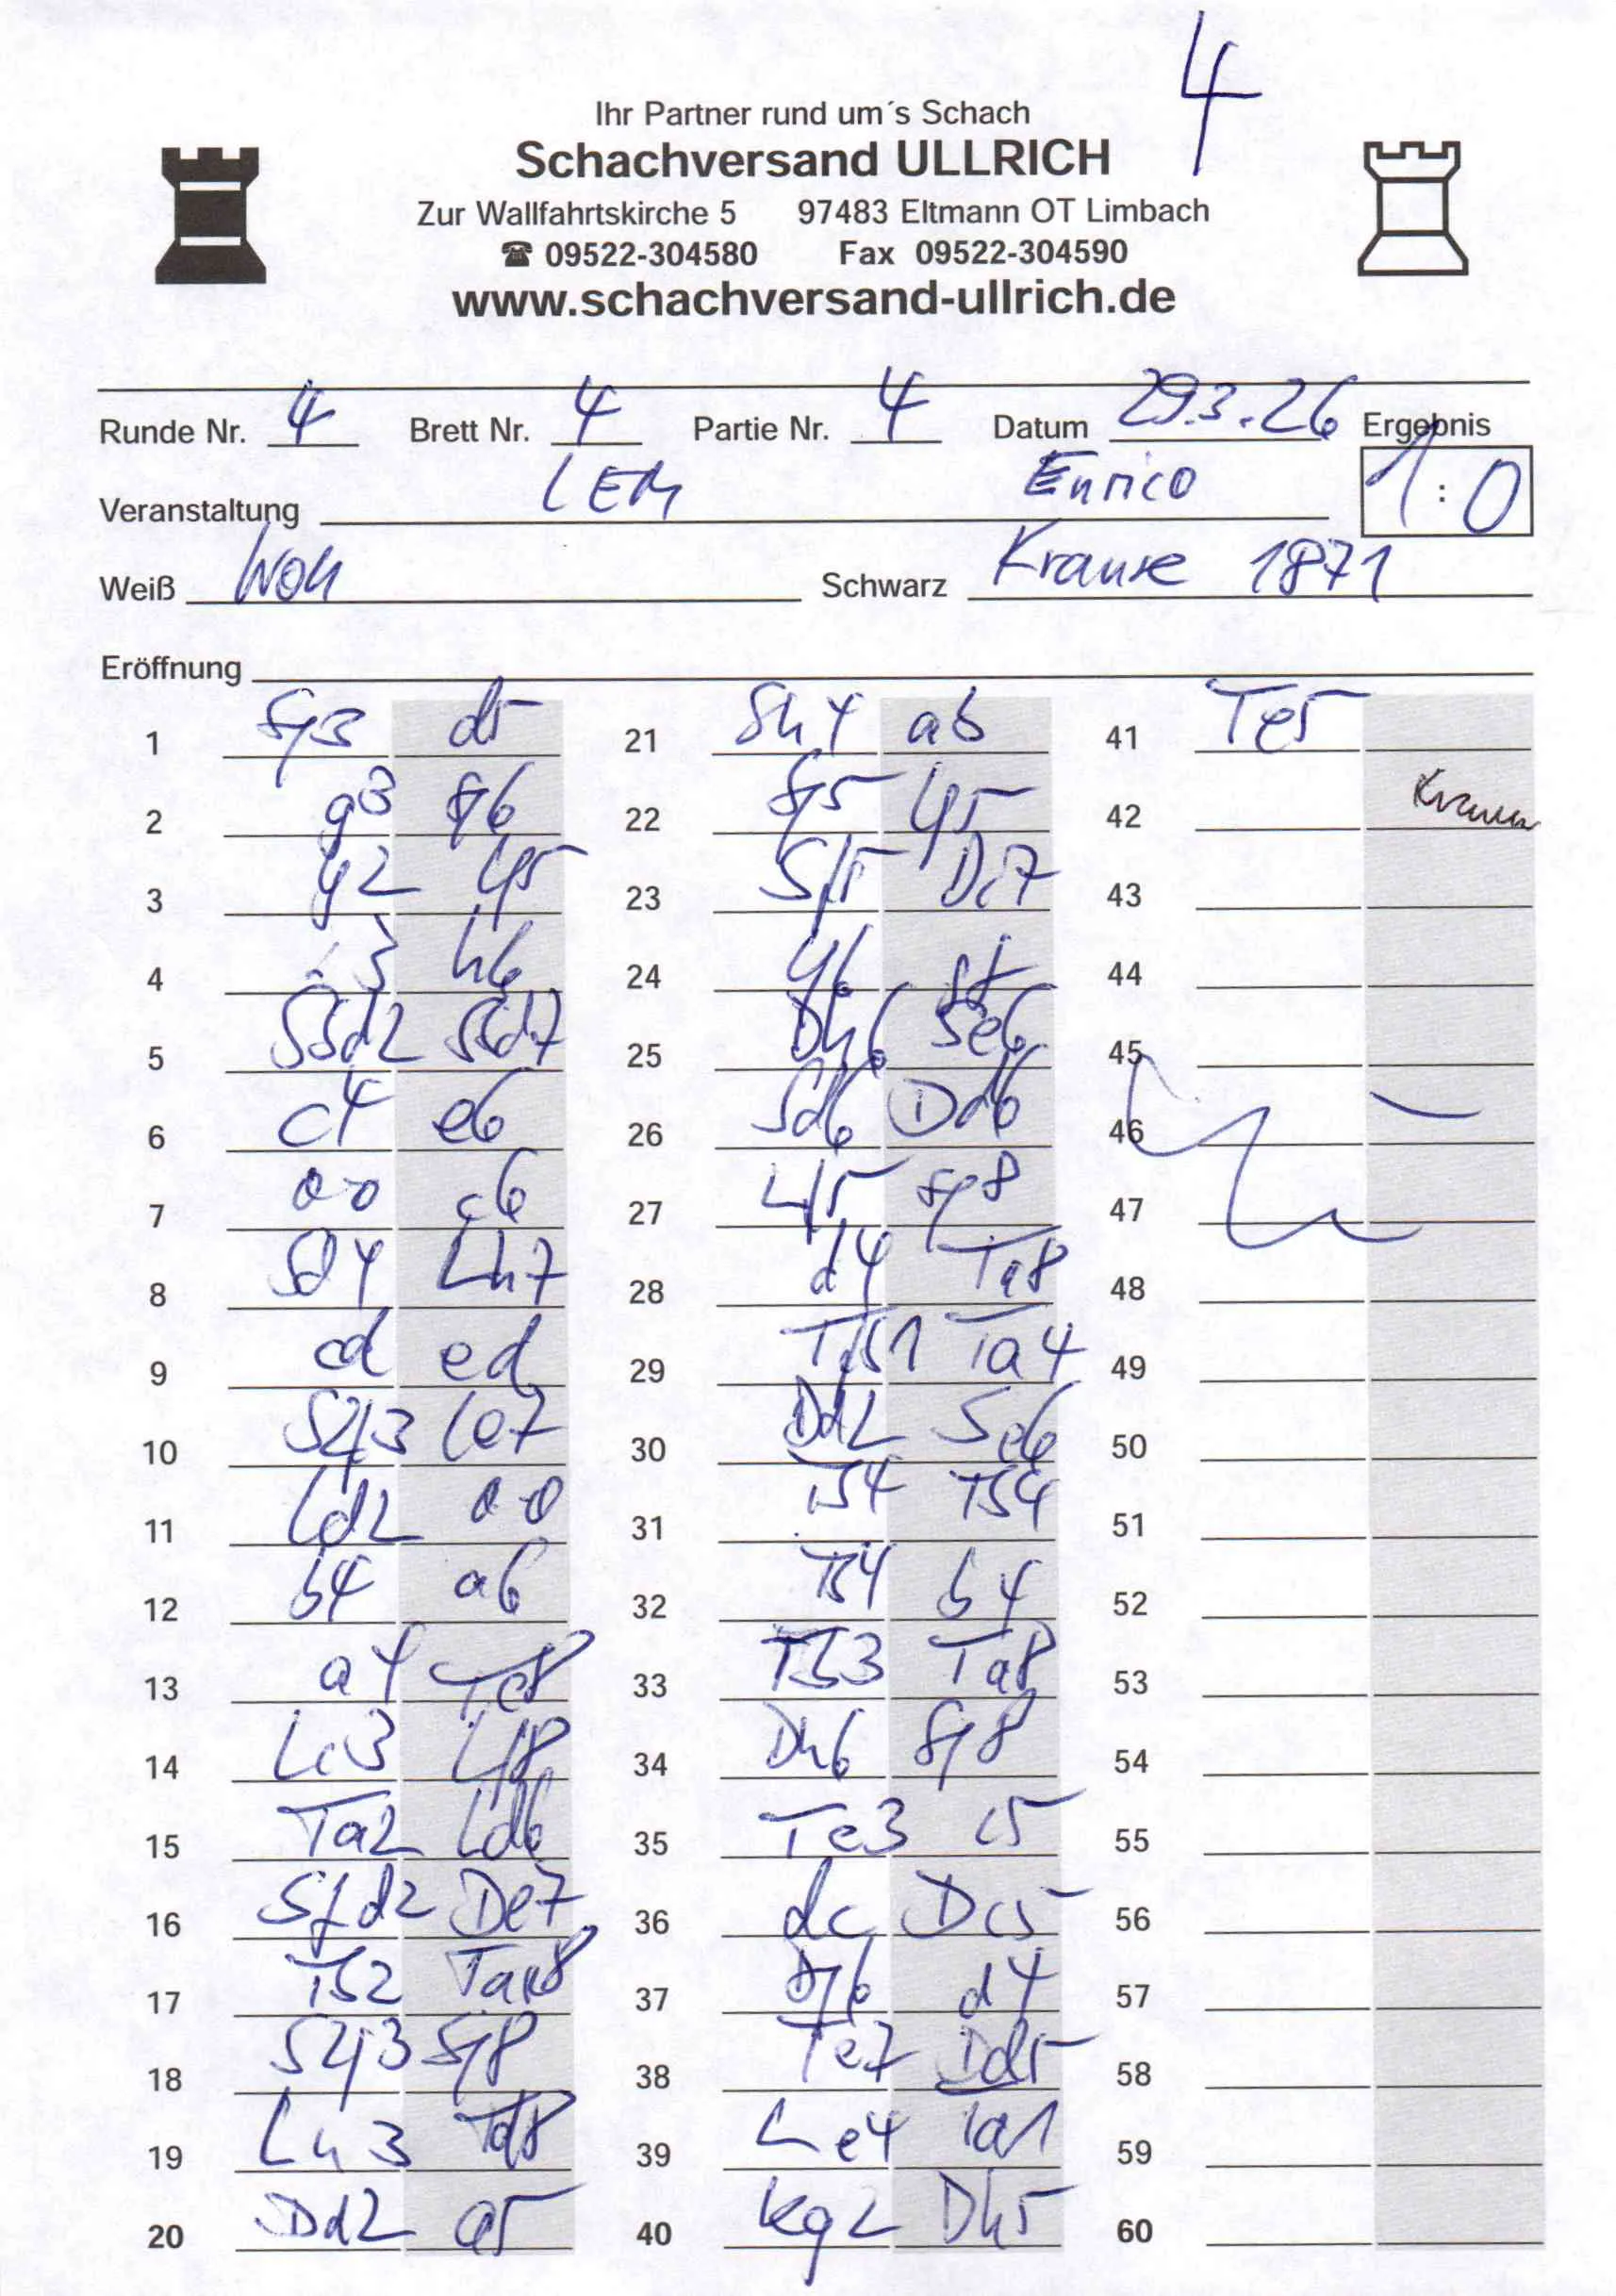 4
Ihr Partner rund um´s Schach
Schachversand ULLRICH
Zur Wallfahrtskirche 5 97483 Eltmann OT Limbach
☎ 09522-304580 Fax 09522-304590
www.schachversand-ullrich.de
Runde Nr. 4 Brett Nr. 4 Partie Nr. 4 Datum 29.3.26 Ergebnis
Veranstaltung LEM Enrico 1:0
Weiß Schwarz Krause 1871
Eröffnung
1 Sf3 d5 21 Sh4 a5 41 Te5
2 g3 Sf6 22 Sf5 Lf5 42 Krause
3 Lg2 Lf5 23 Sf5 Dc7 43
4 h6 24 44
5 Sbd2 Sbd7 25 Dh6 Se6 45
6 c4 e6 26 Sd6 Dd6 46
7 0-0 c6 27 Lf5 Sf8 47
8 Sd4 Lh7 28 d4 Ta8 48
9 cd ed 29 Tfb1 Ta4 49
10 S2f3 Le7 30 Dd2 Se6 50
11 Ld2 0-0 31 Tb4 Tb4 51
12 b4 a6 32 Tb4 b4 52
13 a4 Te8 33 Tb3 Ta8 53
14 Lc3 Lf8 34 Dh6 Sf8 54
15 Ta2 Ld6 35 Te3 c5 55
16 Sfd2 De7 36 dc Dc5 56
17 Tb2 Tac8 37 Dg6 d4 57
18 S2f3 Sf8 38 Te7 Dd5 58
19 Lh3 Td8 39 Le4 Ta1 59
20 Dd2 a5 40 Kg2 Dh5 60